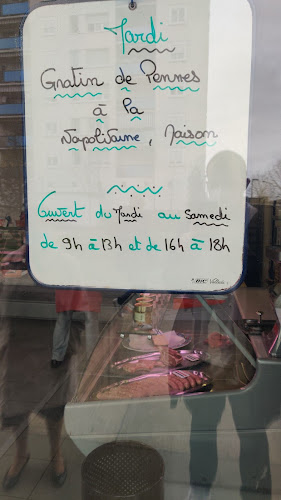 Mardi
Gratin de Pennes
à la
Napolitaine, Maison
Ouvert du Mardi au Samedi
de 9h à 13h et de 16h à 18h